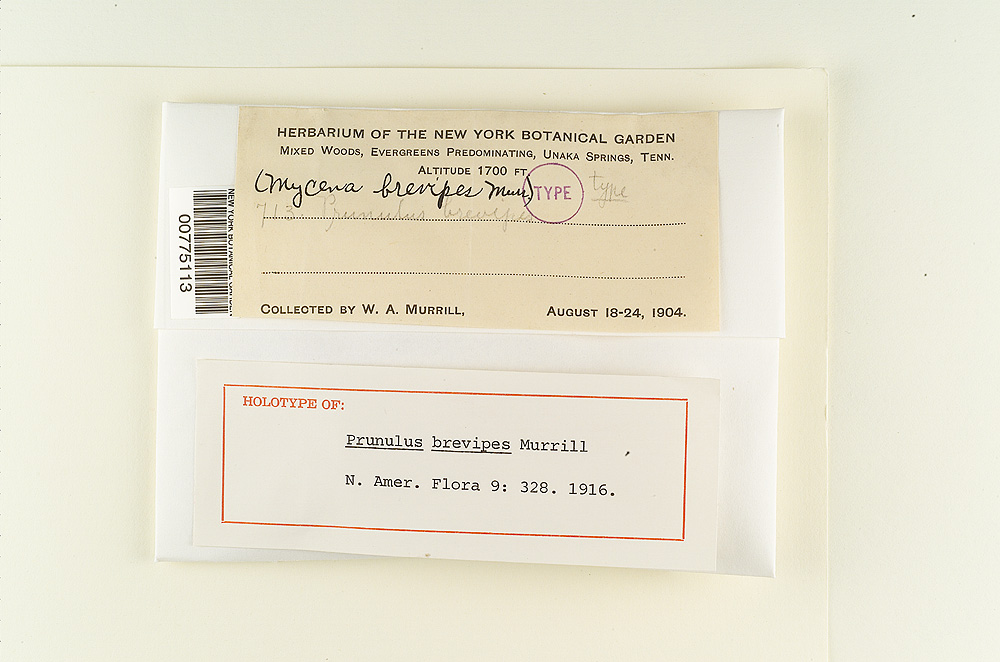 HERBARIUM OF THE NEW YORK BOTANICAL GARDEN
MIXED WOODS, EVERGREENS PREDOMINATING, UNAKA SPRINGS, TENN.
ALTITUDE 1700 FT.
(Mycena brevipes Murr.)
TYPE
type
713. Prunulus brevipes
COLLECTED BY W. A. MURRILL, AUGUST 18-24, 1904.
NEW YORK BOTANICAL GARDEN
00775113
HOLOTYPE OF:
Prunulus brevipes Murrill
N. Amer. Flora 9: 328. 1916.